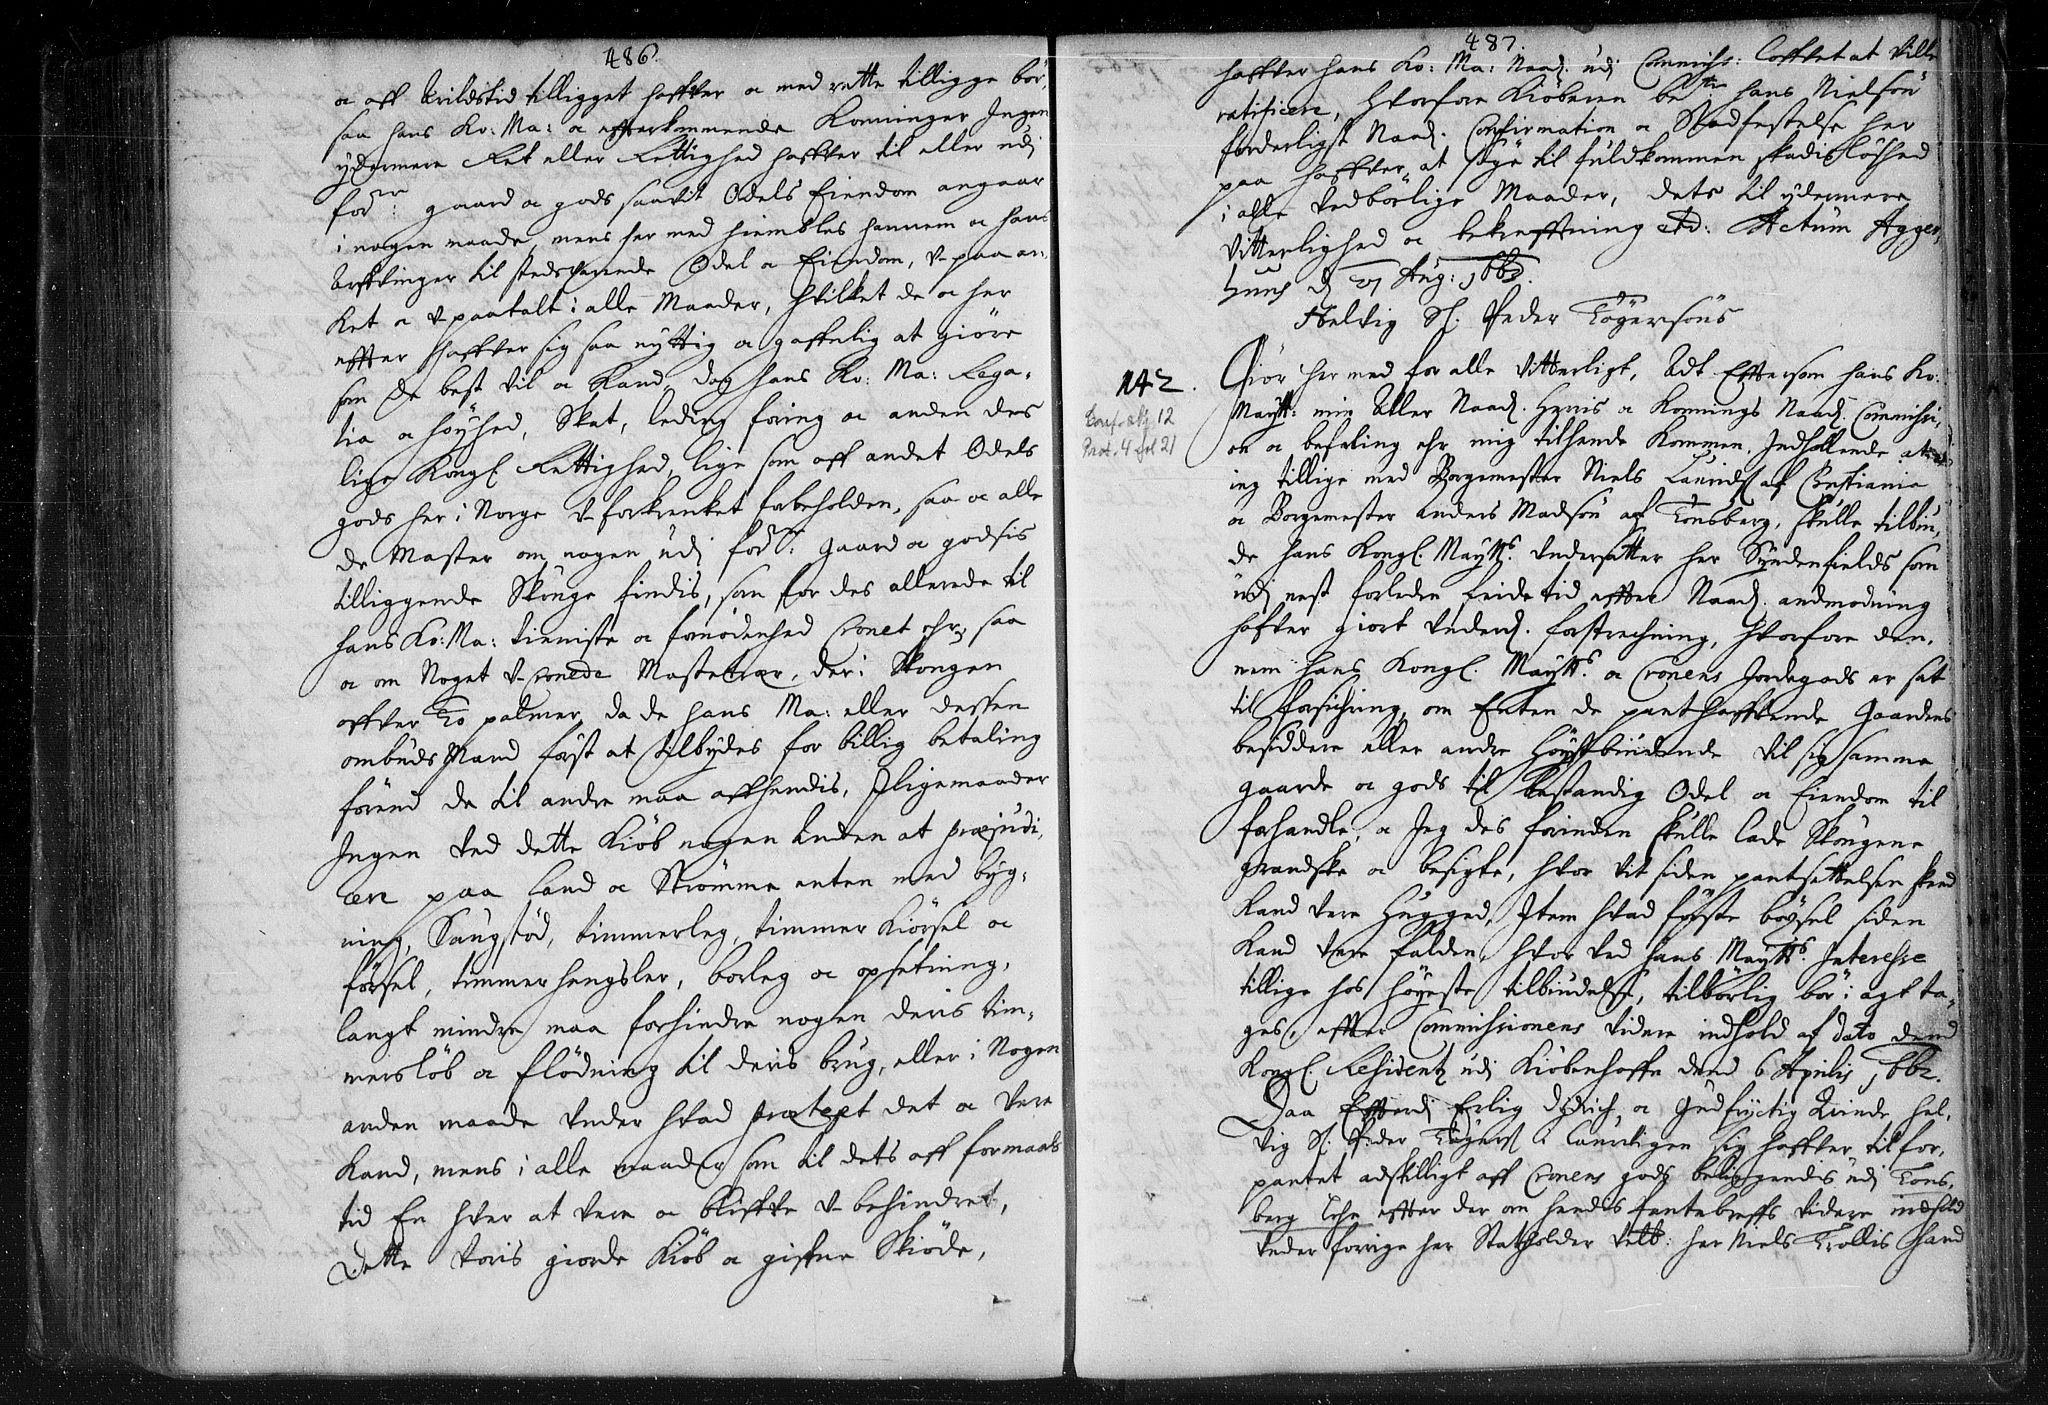 486.
oc aff Arildstid tilligget haffver oc med rette tilligge bör,
saa hans Ko: Ma: oc effterkommende Konninger Ingen
ydermere Ret eller Rettighed haffver til eller udj
for:ne gaard oc gods saavit Odels Eiendom angaar
i nogen maade, mens her med hiembles hannem oc hans
Arffvinger til stedsvarende Odel oc Eiendom, v-paa an-
ket oc v-paatalt i alle Maader, Hvilket de oc her
effter haffver sig saa nyttig oc gaffnlig at giöre
som de best vil oc kand, dog hans Ko: Ma: Rega-
lia oc höyhed, Skat, leding foring oc anden des
lige Kongl. Rettighed, lige som aff andet Odels
gods her i Norge v-forkrenket forbeholden, saa oc alle
de Master om nogen udj for:ne gaard oc godsis
tilliggende Skouge findis, som for des allerede til
hans Ko: Ma: tienniste oc fornödenhed Cronet ehr, saa
oc om Noget v-cronede Mastetræer, der i Skougen
offver To palmer, da de hans Ma: eller dessen
ombuds Mand först at tilbydes for billig betaling
förend de til andre maa affhendis, Iligemaader
Ingen ved dette Kiöb nogen Anden at præjudi-
cere paa Land oc Strömme enten med byg-
ning, Saugstöd, timmerleg, timmer Kiörsel oc
försel, timmer hengsler, borleg oc opsetning,
langt mindre maa forhindre nogen deris tim-
mersløb oc flödning til deris brug, eller i Nogen
anden maade under hvad prætext det oc vere
kand, mens i alle maader som til dets aff formaals
tid En hver at vere oc bliffve v-behindret,
Dette voris giorde Kiöb oc giffne Skiöde,
487.
haffver hans Ko: Ma: Naad. udj Commiss: Loffvet at ville
ratificere, Hvorfore Kiöberen be:te hans Nielsön
forderligst Naad. Confirmation oc Stadfestelse her
paa haffver at söge til fuldkommen skadislöshed
i alle tilbörlige Maader, dets til ydermere
Vitterlighed oc bekrefftning etc: Actum Agger,
huus d 27 Aug: 1662.
Helvig Sl. Peder Tögersöns
142.
Conf. akt 12
Prot. 4 fol 21
Giör her med for alle vitterligt, Adt Effterson hans Ko:
Maytt: min Aller Naad. Herris oc Konnings Naad. Commissi,
on oc befaling ehr mig tilhende kommen, Indhollende at
ieg tillige med Borgemester Niels Lauridtz af Christiania
oc Borgemester Anders Madsön af Tonsberg, skulle tilbiu,
de hans Kongl. Maytts. Undersatter her Syndenfields som
udj nest forleden feide tid effter Naad. andmodning
hafver giort Underd. forstrechning, Hvorfore den,
nem hans Kongl. Maytts. oc Cronens Jordegods er sat
til forsichring, om Enten de panthaffvende Gaardens
besiddere eller andre Höystbiudende vil sig samme
gaarde oc gods til bestandig Odel oc Eiendom til
forhandle, oc Jeg des forinden skulle lade Skougene
grandske oc besigte, hvor vit siden pantsettelsen skeed
kand vere Hugged, Item hvad förste böysel siden
kand vere falden, hvor ved hans Maytts. Interesse
tillige hos höyeste tilbiudelse, tilbörlig bör i agt ta,
ges, effter Commissionens videre indhold af dato dend
Kongl. Residentz udj Kiöbenhaffn dend 6 Aprilis 1662.
Saa Effterdj Erlig Dydrich, oc Gudfryctig Qvinde Hel,
vig Sl. Peder Tögers i Laurvigen sig haffver til for,
pantet adskilligt aff Cronens gods beliggendis udj Tons,
berg Lehn effter der om hendis Rentebreffs videre indhold
Under forrige her Statholder Velb: her Niels Trollis Hand